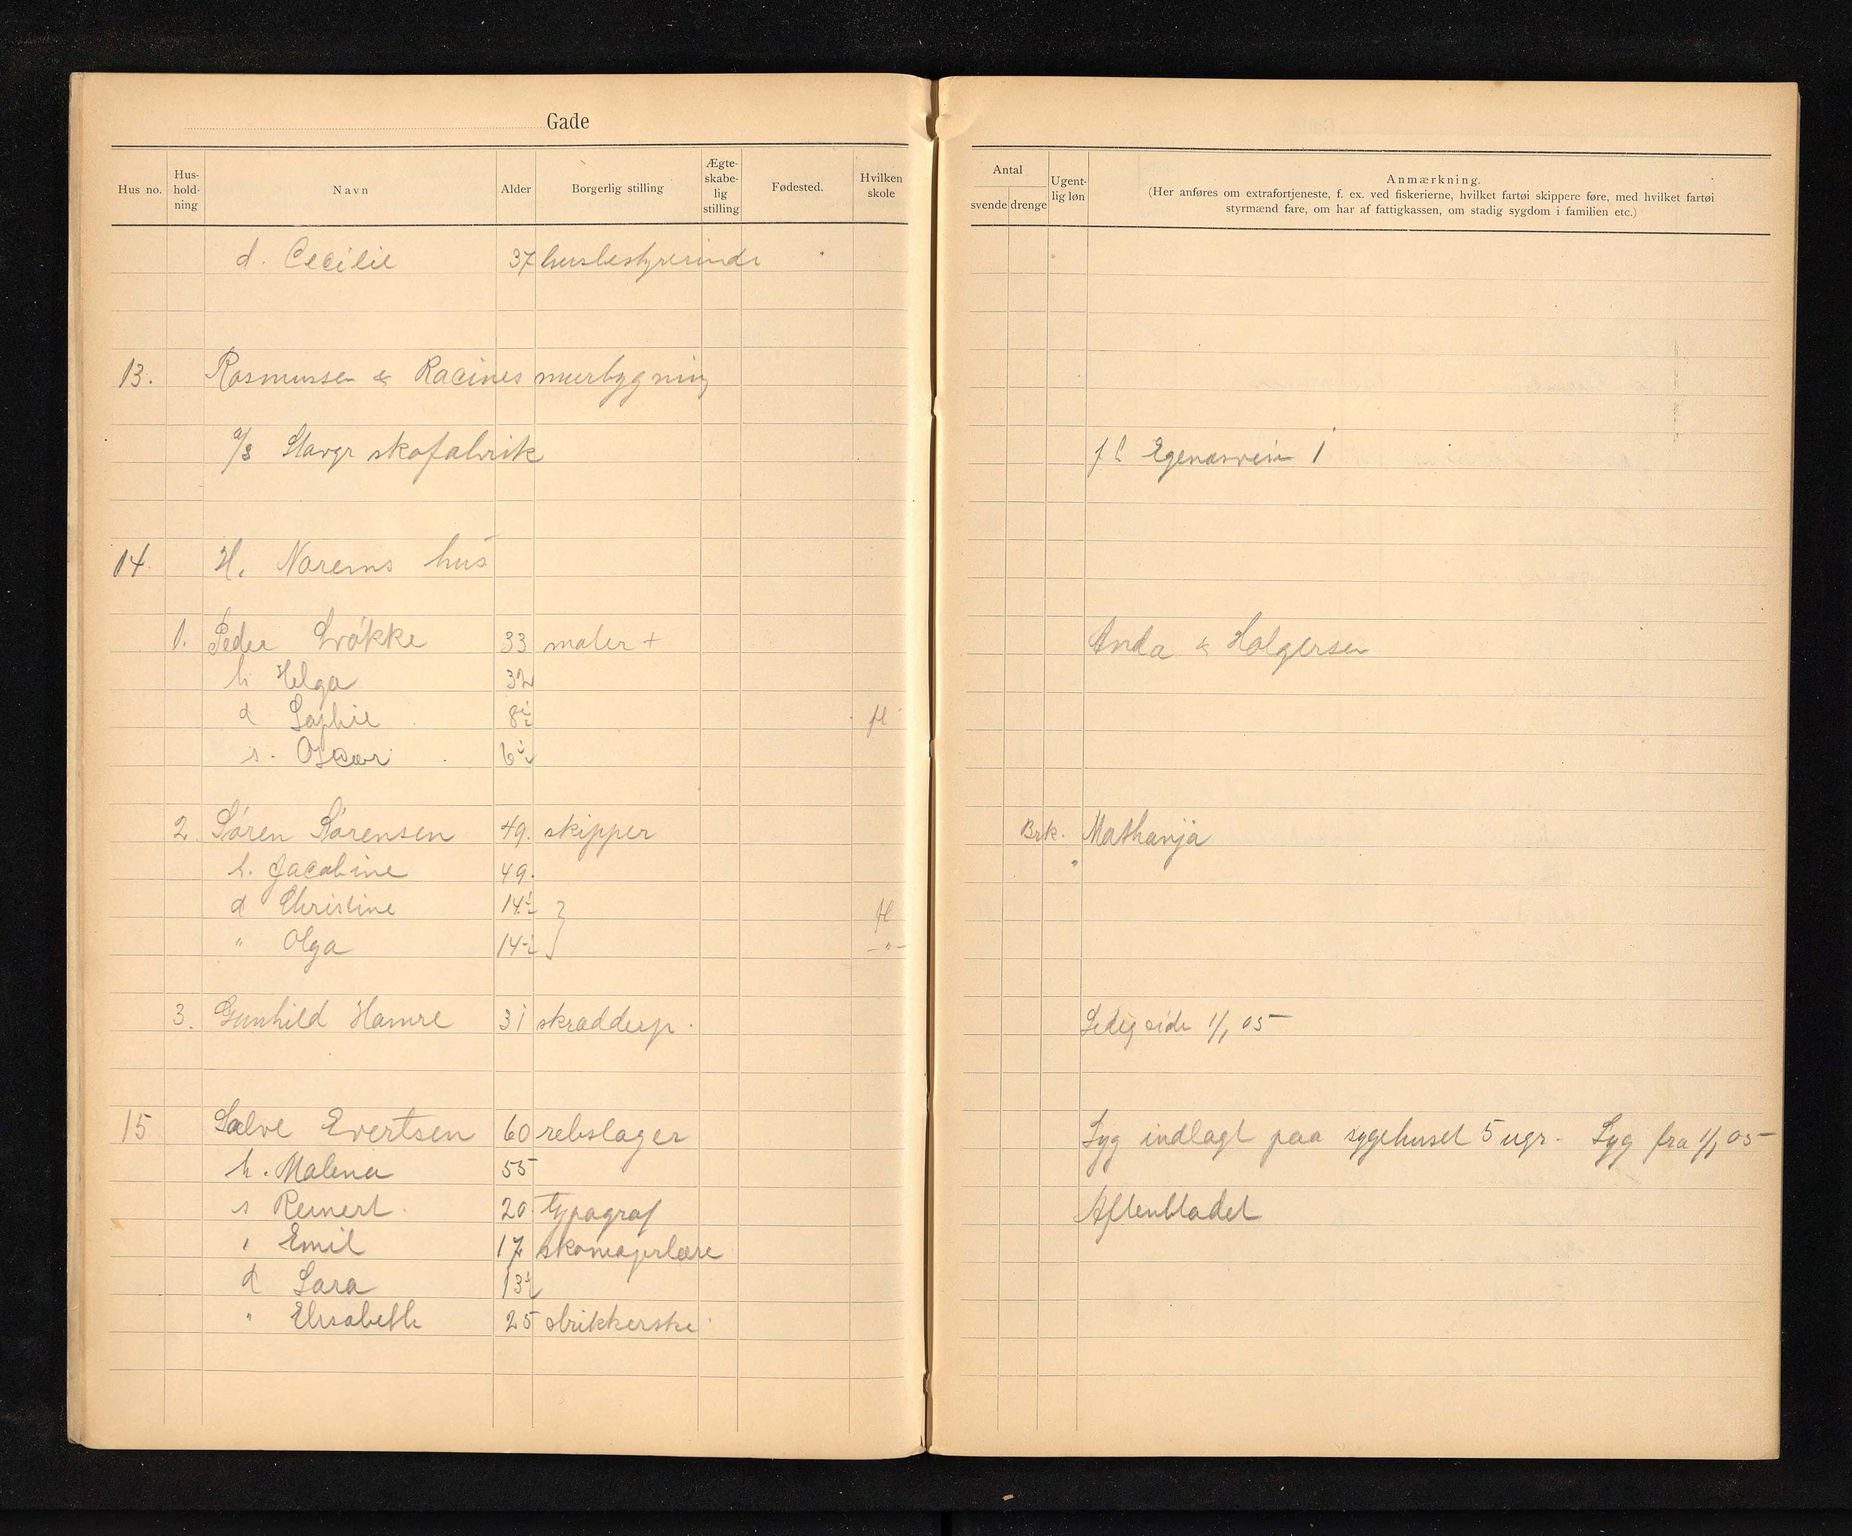 Gade
Hus no. Hus-hold-ning Navn Alder Borgerlig stilling Ægte-skabe-lig stilling Fødested. Hvilken skole
Antal svende drenge Ugent-lig løn Anmærkning.
(Her anføres om extrafortjeneste, f. ex. ved fiskerierne, hvilket fartøi skippere føre, med hvilket fartøi
styrmænd fare, om har af fattigkassen, om stadig sygdom i familien etc.)
d. Cecilie 37 husbestyrerinde
13. Rasmussen & Racines murbygning
a/s Stavgr skofabrik f l Egenæsvein 1
14. H. Narems hus
1. Peder Løkke 33 maler + Anda & Holgersen
h Helga 32
d Sophie 8½ fl
s. Oscar 6½
2. Søren Sørensen 49. skipper Brk. Mathanja
h. Jacobine 49. "
d Christine 14½ } fl
" Olga 14½ -"-
3. Gunhild Hamre 31 skrædderp. Ledig side 1/1 05
15 Salve Evertsen 60 rebslager Syg indlagt paa sygehuset 5 ugr. Syg fra 1/1 05
h. Malena 55
s Reinert 20 typograf Aftenbladet
" Emil 17 skomagerlære
d Sara 13½
" Elisabeth 25 strikkerske